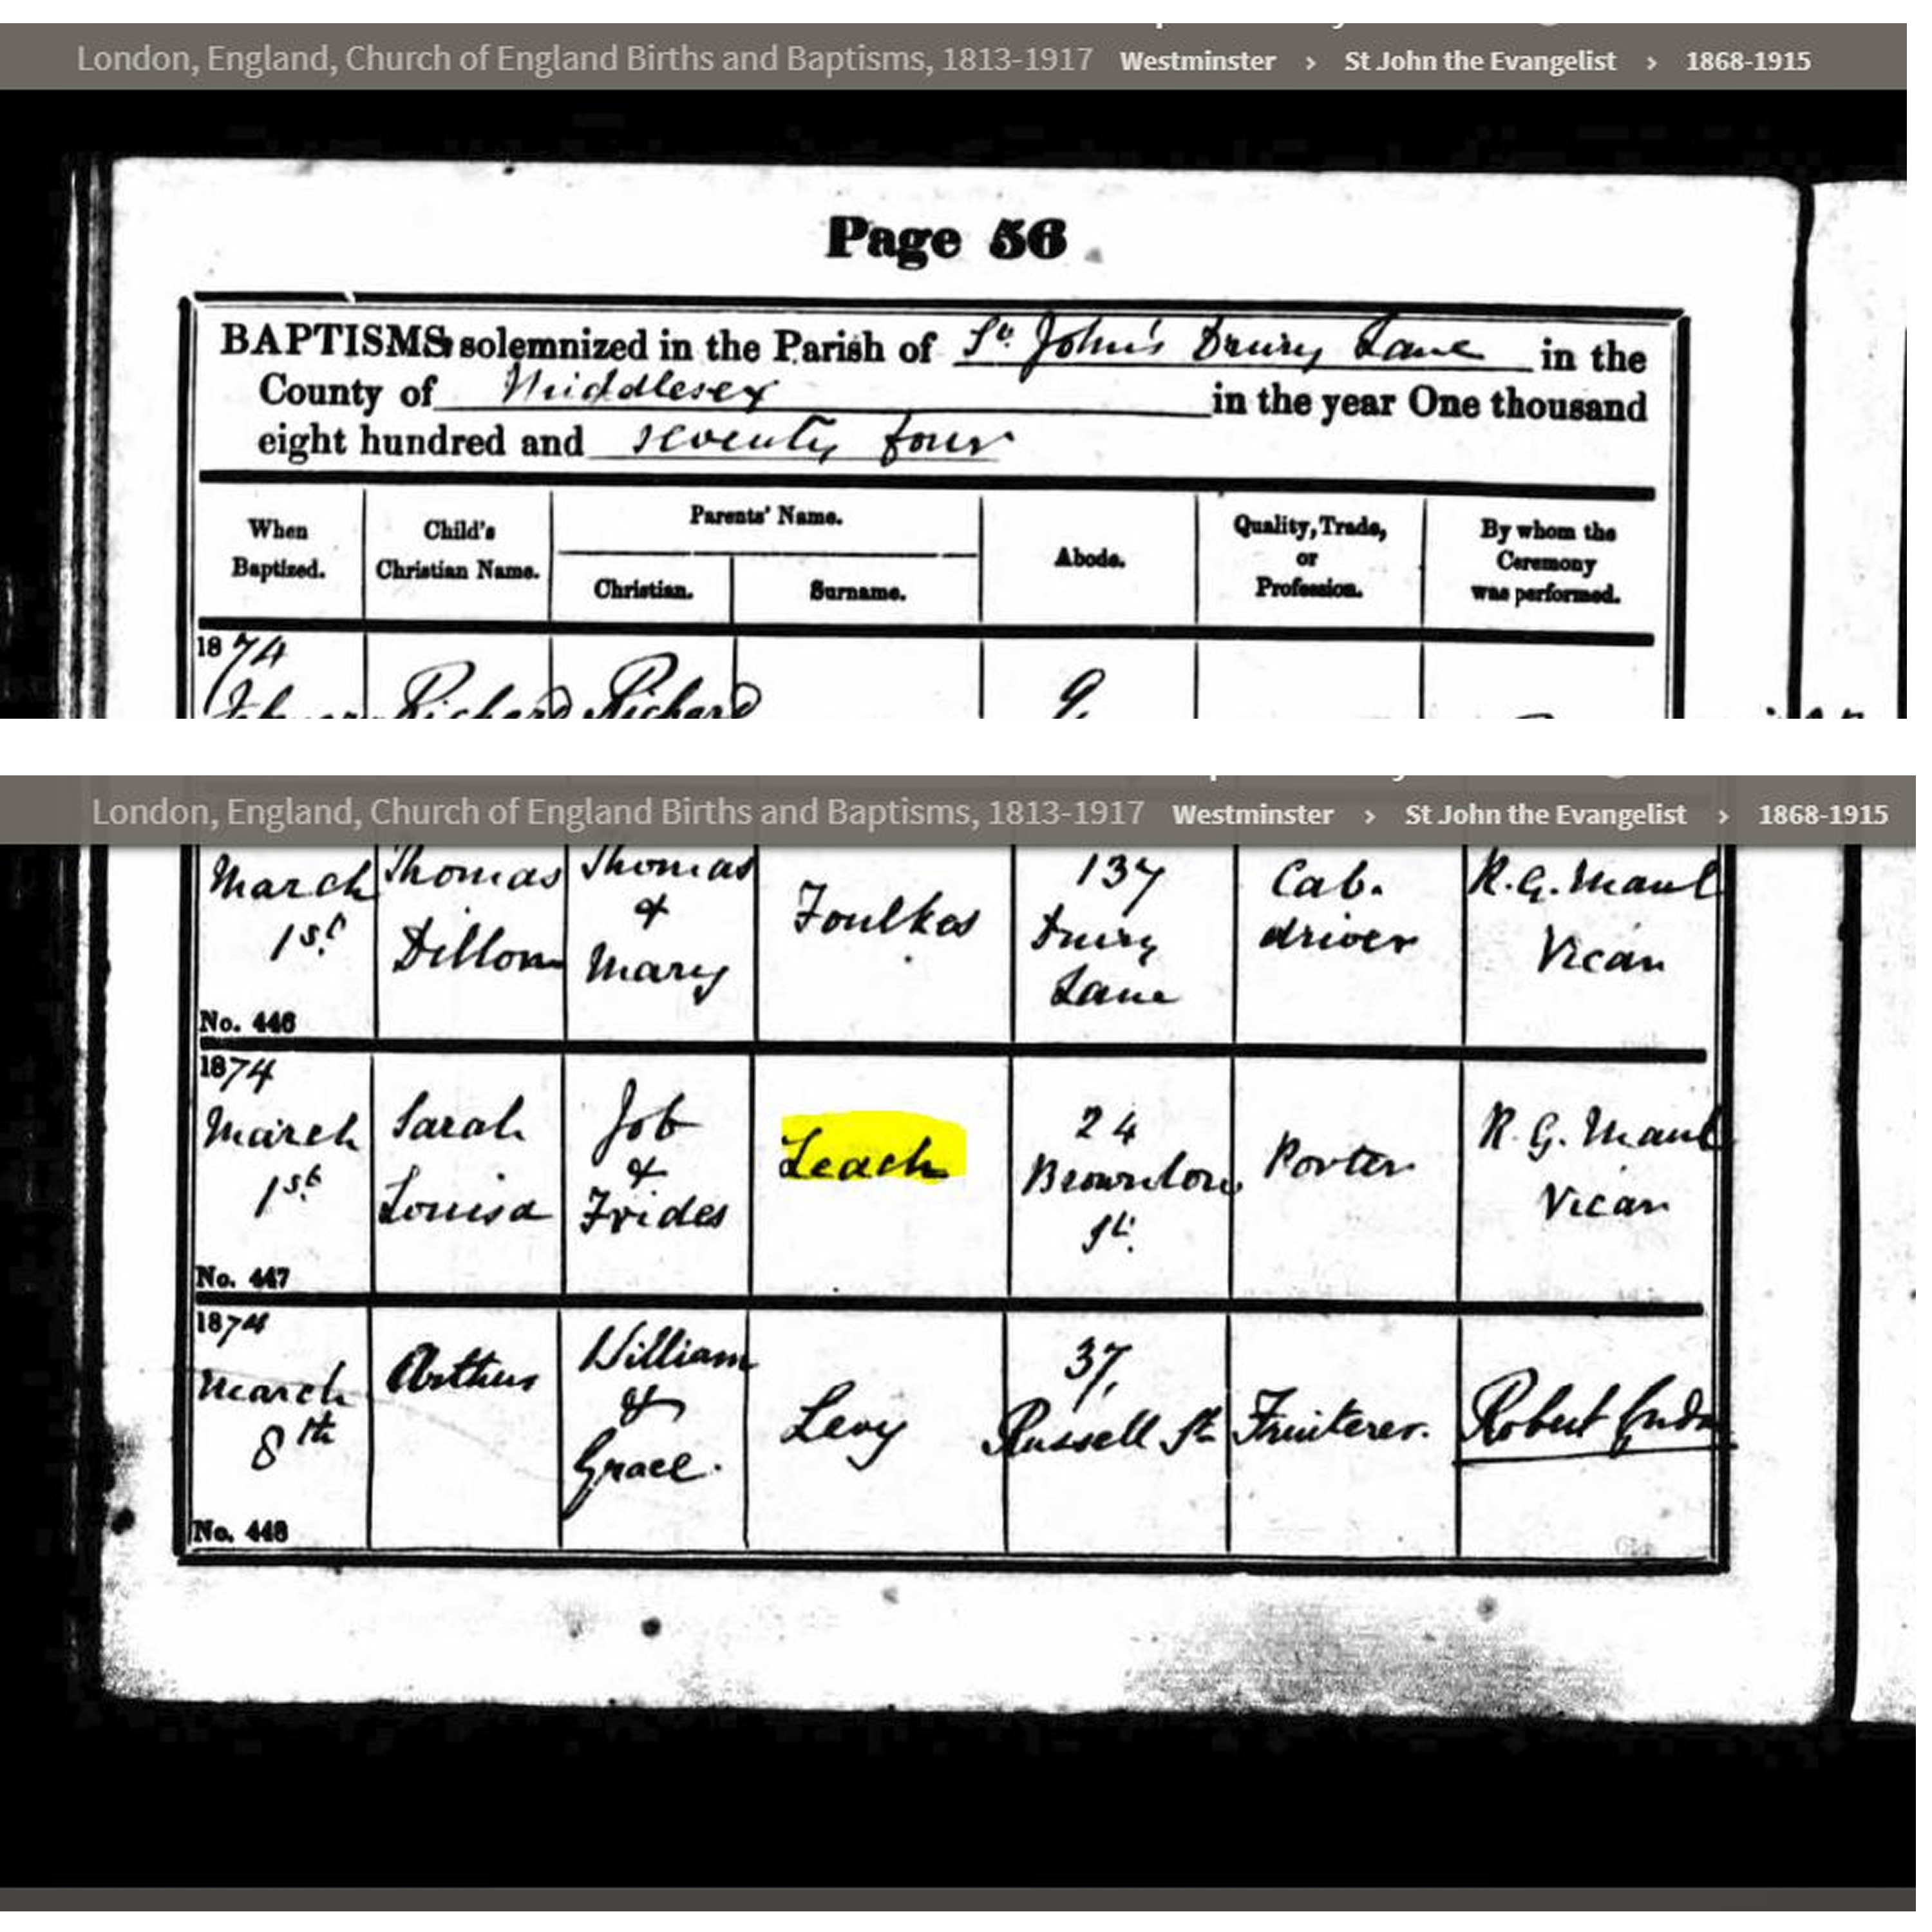 London, England, Church of England Births and Baptisms, 1813-1917 Westminster > St John the Evangelist > 1868-1915
Page 56
BAPTISMS solemnized in the Parish of St. John's Drury Lane in the
County of Middlesex in the year One thousand
eight hundred and seventy four
When Baptized.
Child's Christian Name.
Parents' Name.
Christian.
Surname.
Abode.
Quality, Trade, or Profession.
By whom the Ceremony was performed.
1874
Richard Richard
London, England, Church of England Births and Baptisms, 1813-1917 Westminster > St John the Evangelist > 1868-1915
March 1st.
Thomas Dillon
Thomas & Mary
Foulkes
137 Drury Lane
Cab. driver
R. G. Maul Vicar
No. 446
1874
March 1st.
Sarah Louisa
Job & Frides
Leach
24 Brownlow St.
Porter
R. G. Maul Vicar
No. 447
1874
March 8th
Arthur
William & Grace.
Levy
37, Russell St
Fruiterer.
Robert
No. 448